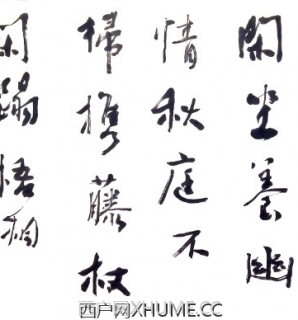 閑坐養幽
情秋庭不
掃携藤杖
閑蹋梧桐
西户网XHUME.CC